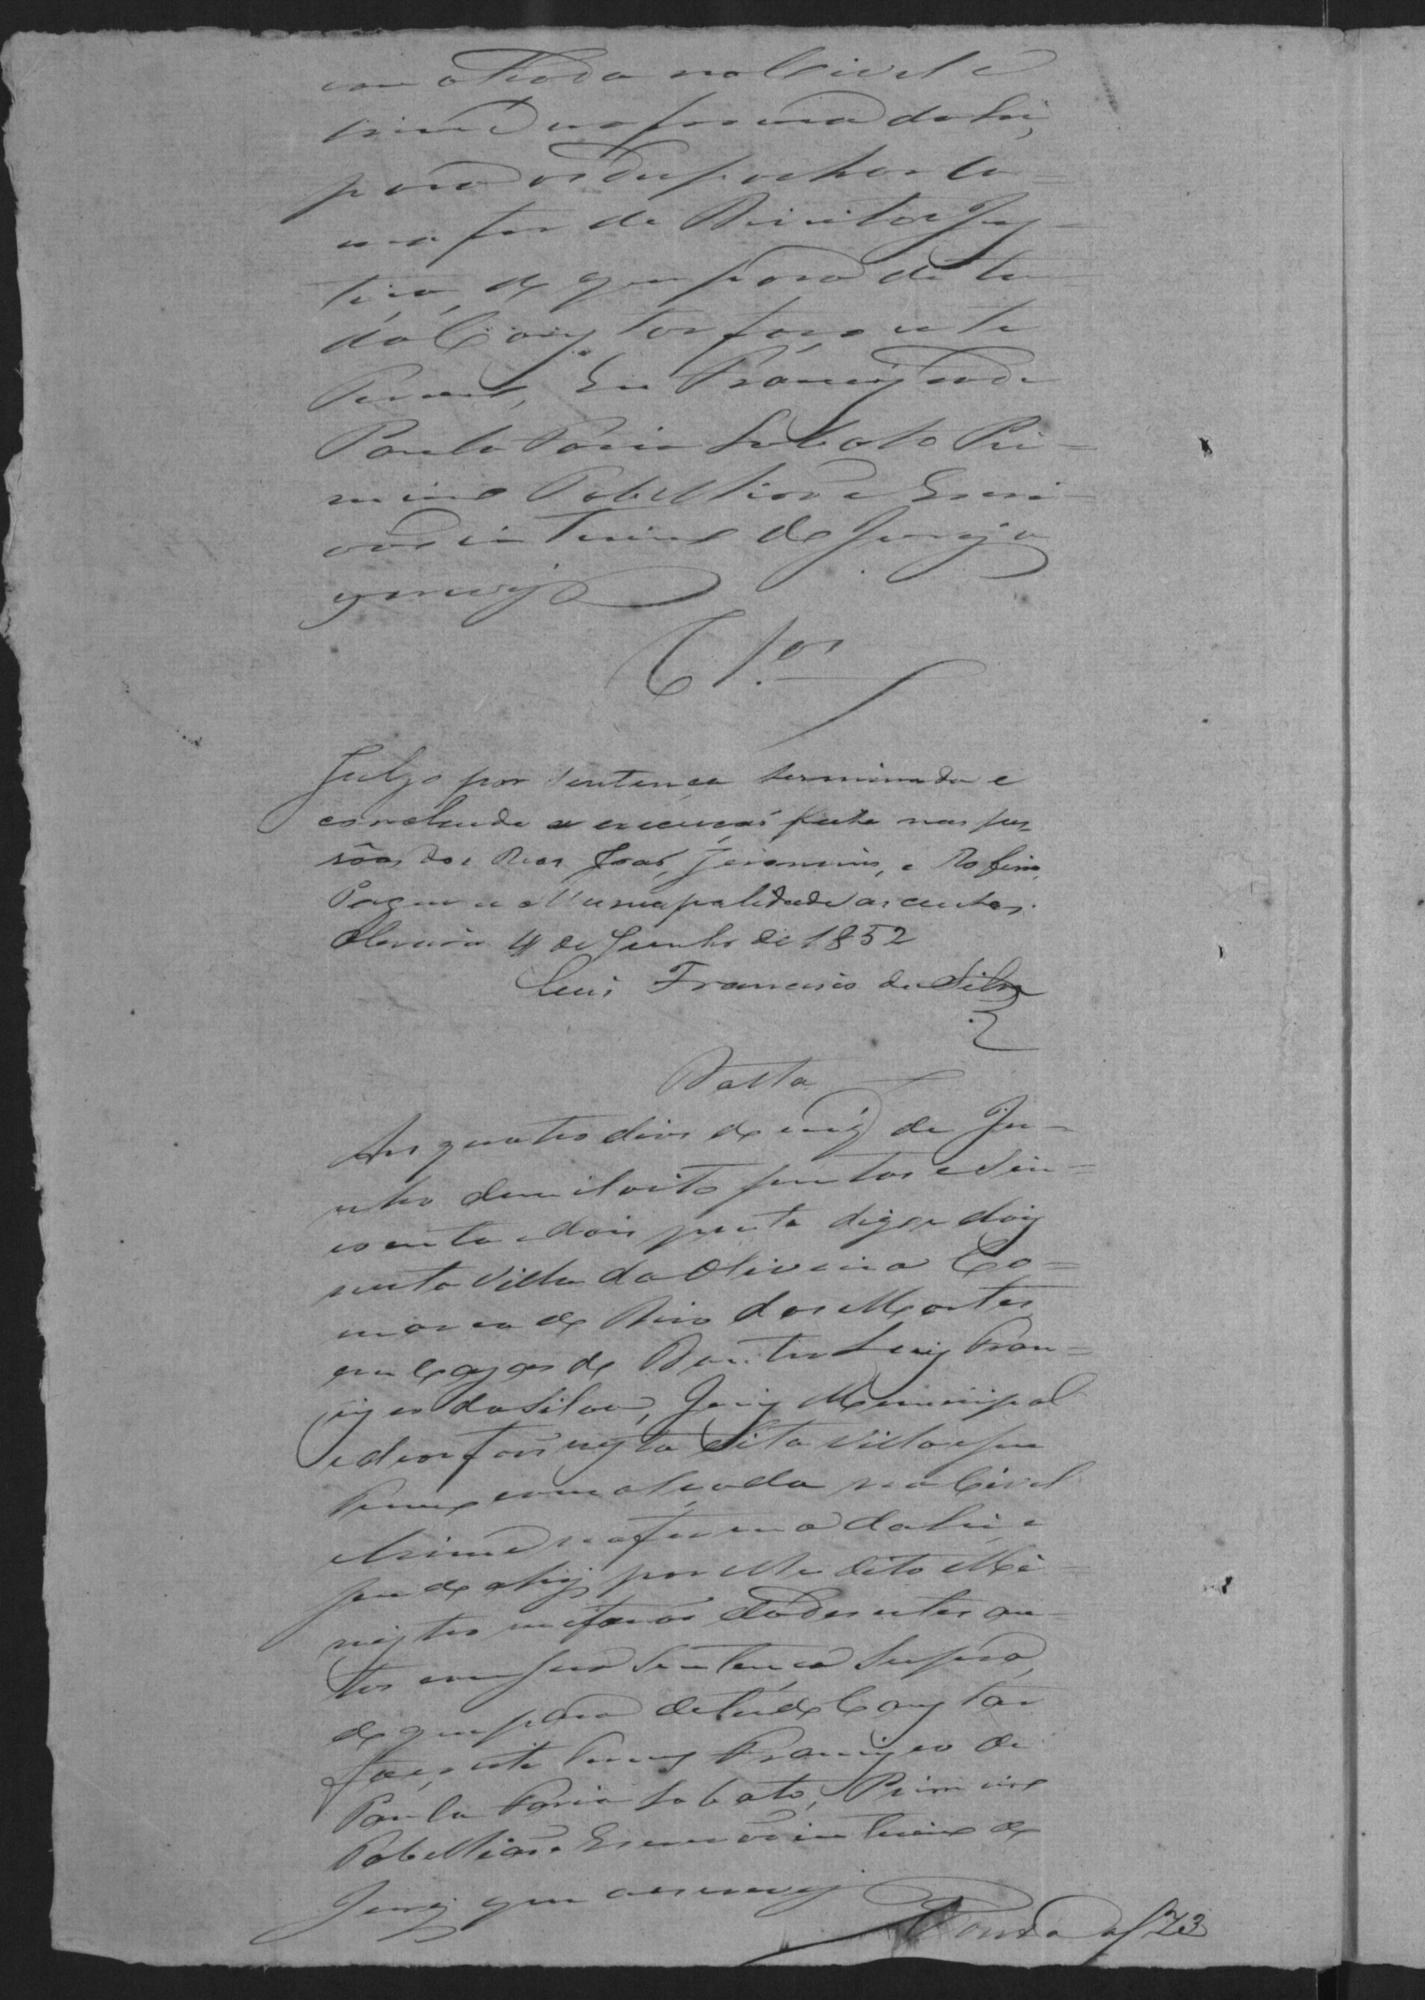 com alçada no Civel e
Crime na forma da Lei,
para os despachar co-
mo for de Direito e Jus-
tiça, de que para de tu-
do Constar faço este
Termo, Eu Francisco de
Paula Faria Lobato Pri-
meiro Tabellião e Escri-
vão interino do Jury o
escrevy
Clos
Julgo por sentença terminada e
concluida a execução feita nas pes-
sôas dos Reos João, Jeronimo, e Rofino,
Pague a Municipalidade as custas.
Oliveira 4 de Junho de 1852
Luis Francisco da Silva
Datta
Aos quatro dias do mez de Ju-
nho de mil oito centos e cin-
coenta e dois nesta digo e dois
nesta Villa da Oliveira Co-
marca do Rio das Mortes
em Cazas do Doutor Luiz Fran-
cisco da Silva, Juiz Municipal
e de orfãos nesta dita Villa e seu
Termo com alçada no Civel
e Crime na forma da Lei e
sendo ahy por elle dito Me-
nistro me forão dados estes au-
tos com sua Sentença Supra,
do que para de tudo Constar
faço este termo Francisco de
Paula Faria Lobato, Primeiro
Tabellião e Escrivão interino do
Jury que o escrevy
Conta af 23